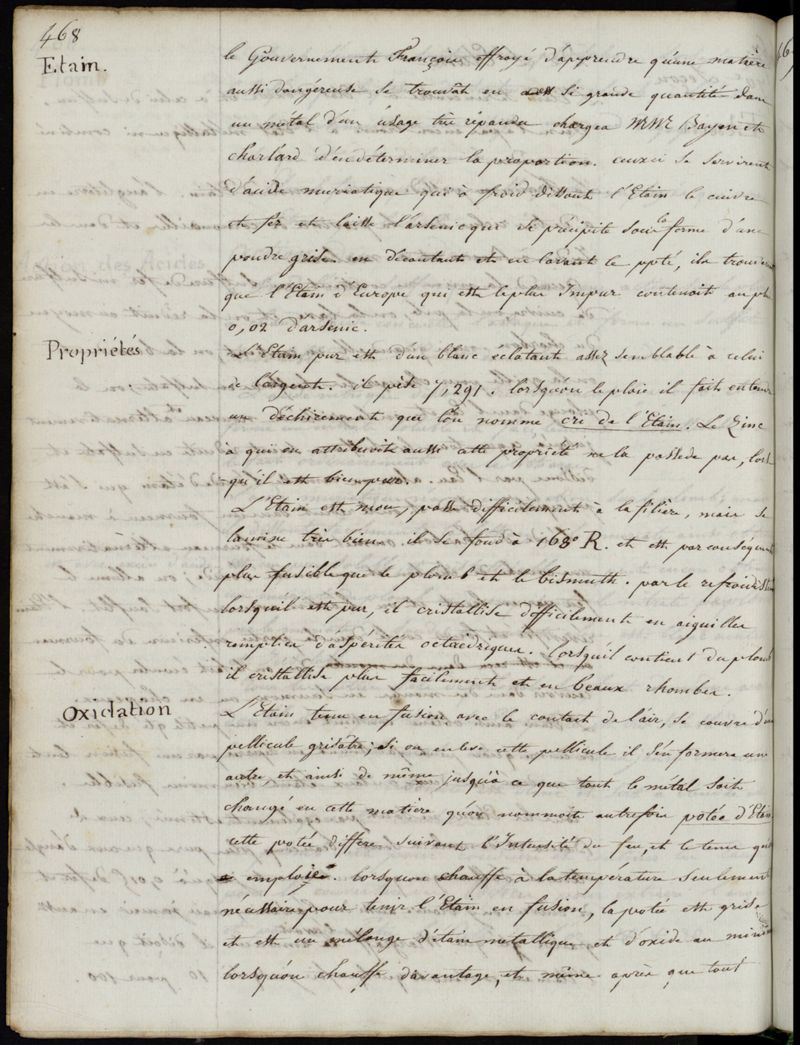 468
Etain.
le Gouvernement François effrayé d'apprendre qu'une matière
aussi dangéreuse se trouvât en si grande quantité dans
un métal d'un usage très répandu chargea MM. Bayen et
charlard d'en déterminer la proportion. ceux ci se servirent
d'acide muriatique qui à froid dissout l'Etain le cuivre
et fer et laisse l'arsenic qui se précipite sous la forme d'une
poudre grise. en décantant et en lavant le ppté, ils trouvèrent
que l'Etain d'Europe qui est le plus Impur contenoit au plus
0,02 d'arsenic.
Propriétés
L'Etain pur est d'un blanc éclatant assez semblable à celui
de l'argent. il pèse 7,291. lorsqu'on le ploie il fait entendre
un déchirement que l'on nomme cri de l'Etain. Le Zinc
à qui on attribuoit aussi cette propriété ne la possede pas, lors
qu'il est bien pur.
L'Etain est mou, passe difficilement à la filière, mais se
lamine très bien. il se fond à 168° R. et est par conséquent
plus fusible que le plomb et le bismuth. par le refroidiss
lorsqu'il est pur, il cristallise difficilement en aiguilles
remplies d'aspérités octaédriques. lorsqu'il contient du plomb
il cristallise plus facilement et en beaux rhombes.
Oxidation
L'Etain tenu en fusion avec le contact de l'air, se couvre d'une
pellicule grisâtre; si on enleve cette pellicule il s'en formera une
autre, et ainsi de même jusqu'à ce que tout le métal soit
changé en cette matiere qu'on nommoit autrefois potée d'Etain
cette potée differe suivant l'Intensité du feu, et le tems qu
emploié. lorsqu'on chauffe à la température seulement
nécessaire pour tenir l'Etain en fusion, la potée est grise
et est un mélange d'étain metallique et d'oxide au minim
lorsqu'on chauffe davantage, et même après que tout